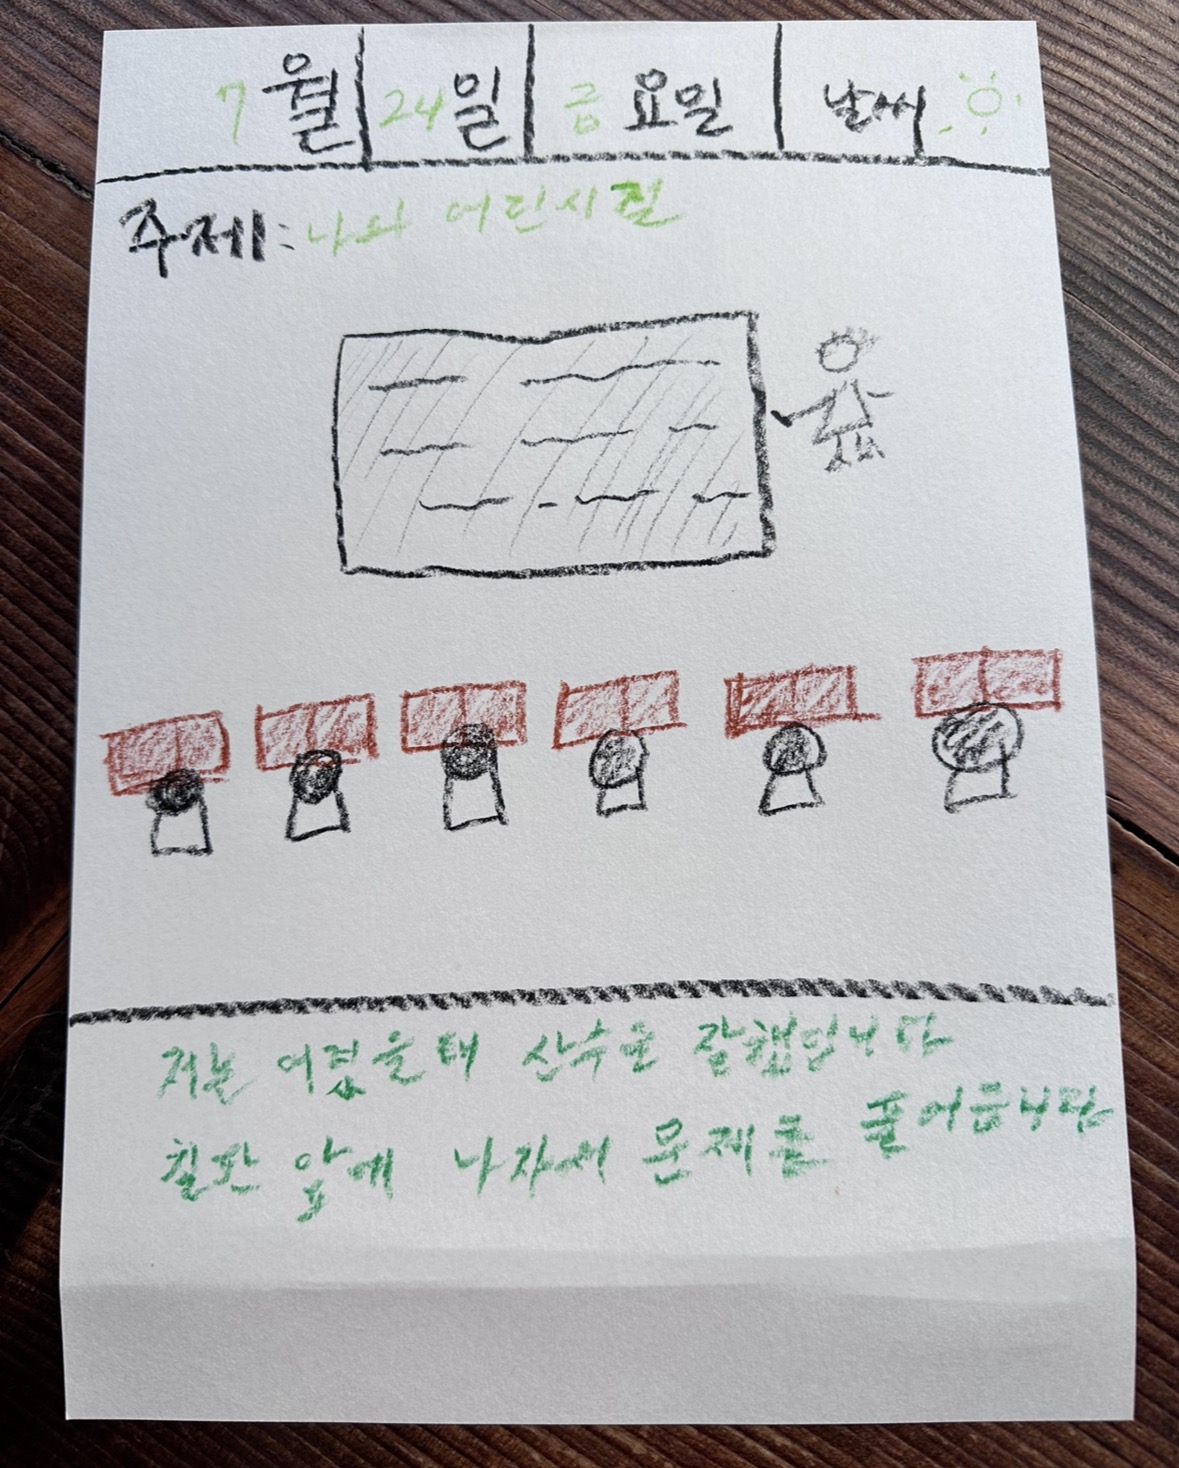 7월 24일 금요일 날씨
주제: 나의 어린시절
저는 어렸을때 산수를 잘했입니다
칠판 앞에 나자서 문제를 풀어읍니다